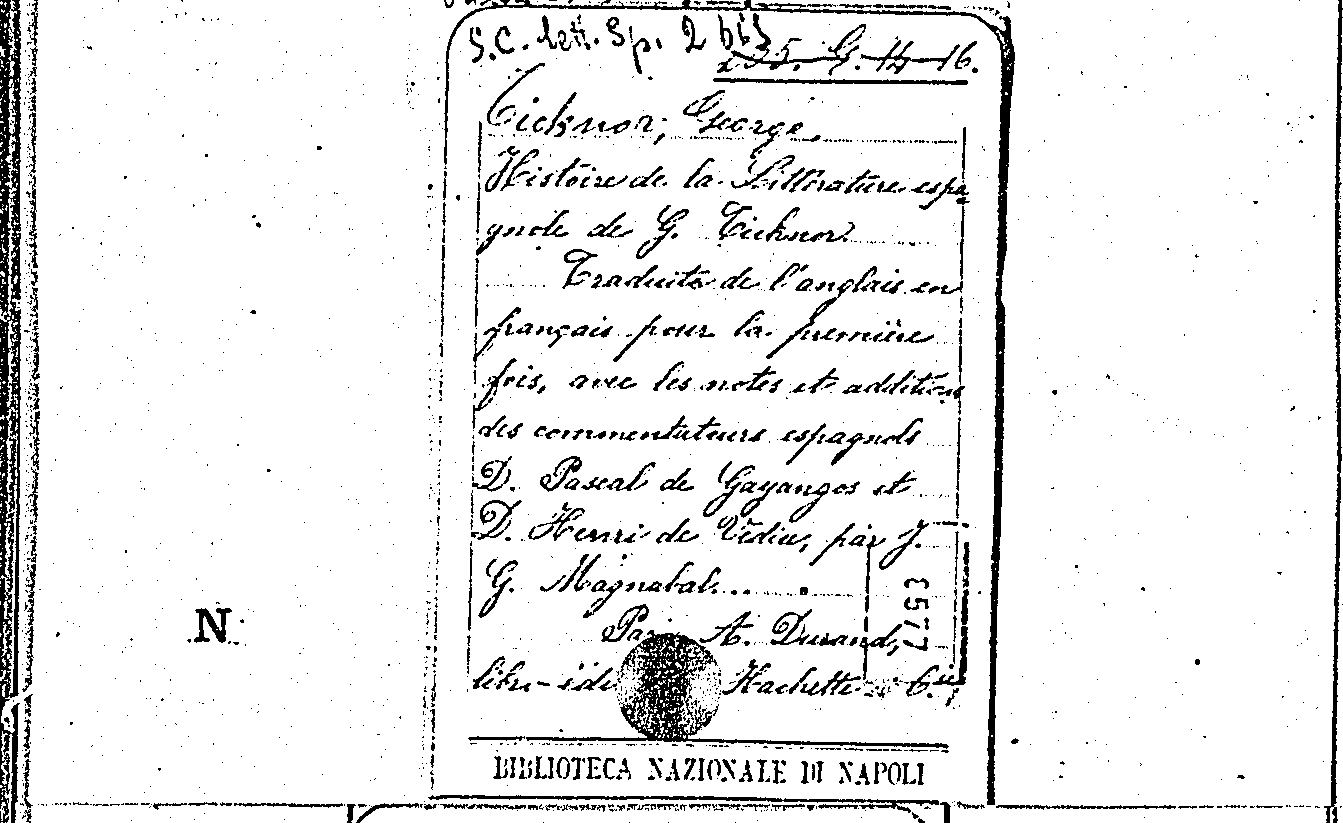 S.C. Lett. Sp. 2 bis
235. G. 14-16.
Ticknor, George
Histoire de la Littérature espa-
gnole de G. Ticknor.
Traduite de l'anglais en
français pour la première
fois, avec les notes et additions
des commentateurs espagnols
D. Pascal de Gayangos et
D. Henri de Vedia, par J.
G. Magnabal...
A. Durand,
libr-édi Hachette et C.ie,
6577
N
BIBLIOTECA NAZIONALE DI NAPOLI